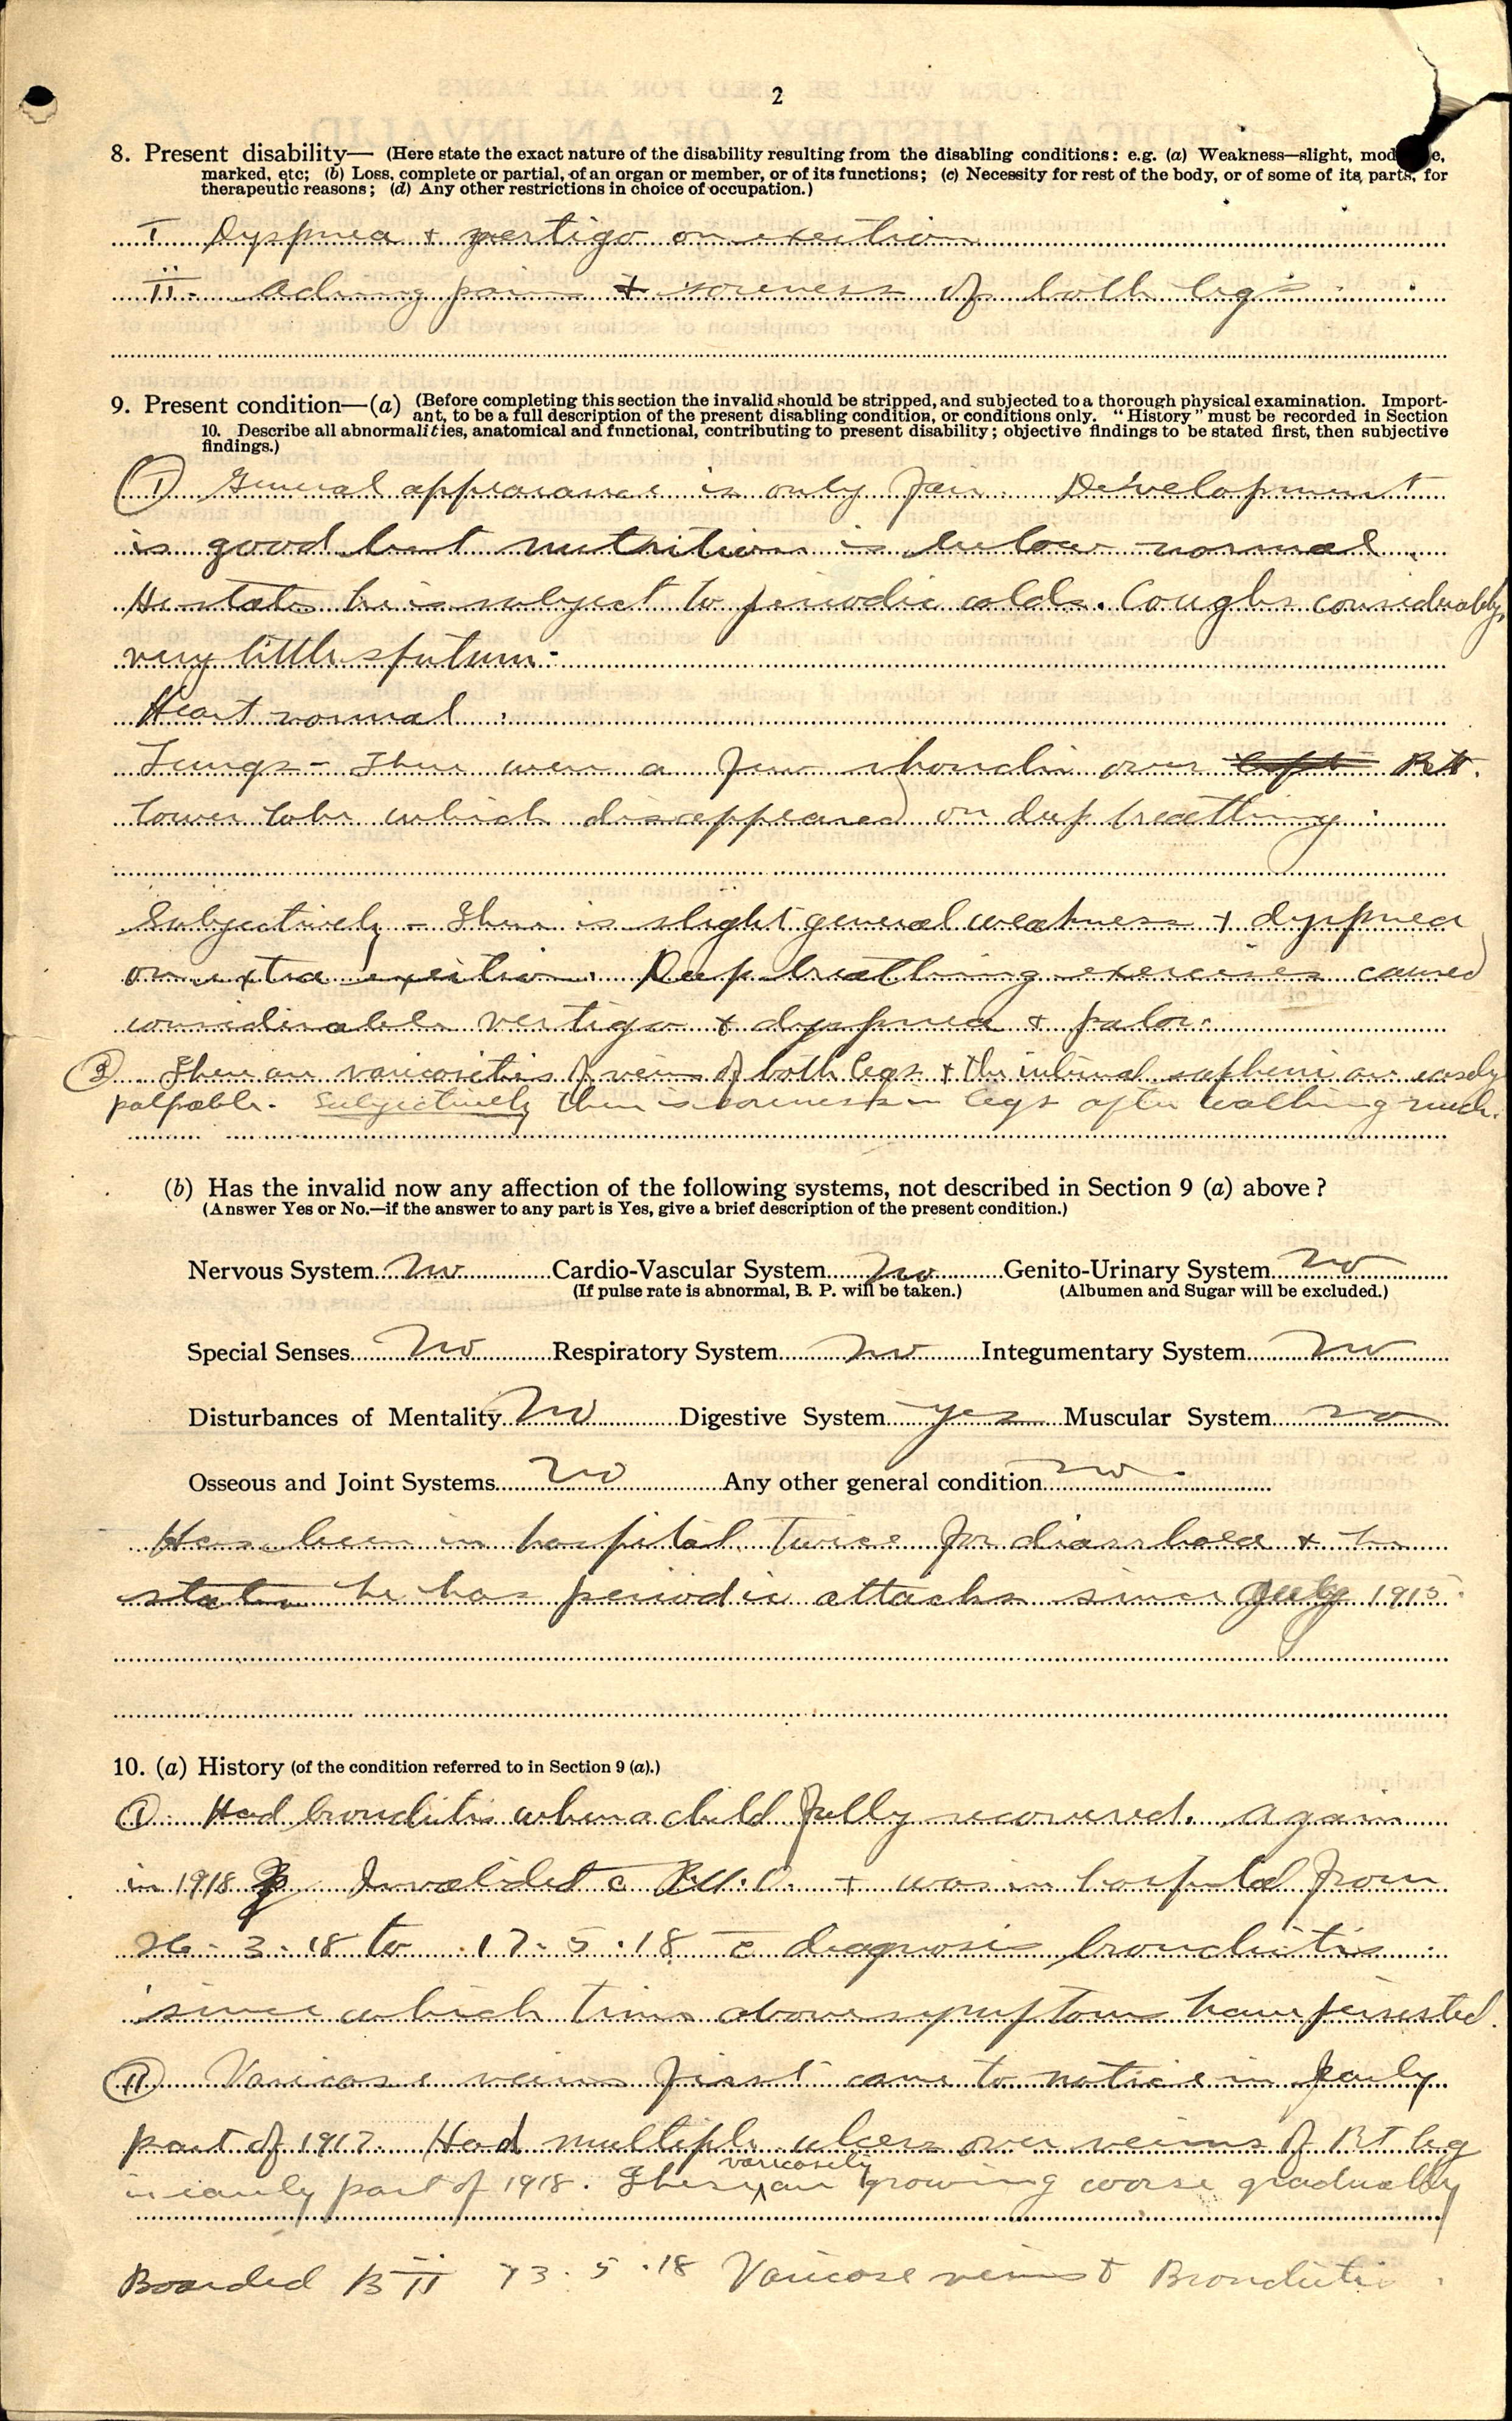 2
8. Present disability— (Here state the exact nature of the disability resulting from the disabling conditions: e.g. (a) Weakness—slight, mod e,
marked, etc; (b) Loss, complete or partial, of an organ or member, or of its functions; (c) Necessity for rest of the body, or of some of its parts, for
therapeutic reasons; (d) Any other restrictions in choice of occupation.)
I Dyspnea + vertigo on exertion
II. Aching pain + soreness of both legs
9. Present condition—(a) (Before completing this section the invalid should be stripped, and subjected to a thorough physical examination. Import-
ant, to be a full description of the present disabling condition, or conditions only. "History" must be recorded in Section
10. Describe all abnormalities, anatomical and functional, contributing to present disability; objective findings to be stated first, then subjective
findings.)
(1) General appearance is only fair. Development
is good but nutrition is below normal.
He states he is subject to periodic colds. Coughs considerably,
very little sputum.
Heart normal.
Lungs – There were a few rhonchi over left Rt.
lower lobe which disappeared on deep breathing.
Subjectively – There is slight general weakness + dyspnea
on extra exertion. Deep breathing exercises caused
considerable vertigo + dyspnea + palor.
(2) There are varicosities of veins of both legs + the internal sapheni are easily
palpable. Subjectively there is soreness in legs after walking much.
(b) Has the invalid now any affection of the following systems, not described in Section 9 (a) above?
(Answer Yes or No.—if the answer to any part is Yes, give a brief description of the present condition.)
Nervous System no Cardio-Vascular System no Genito-Urinary System no
(If pulse rate is abnormal, B. P. will be taken.) (Albumen and Sugar will be excluded.)
Special Senses no Respiratory System no Integumentary System no
Disturbances of Mentality no Digestive System yes Muscular System no
Osseous and Joint Systems no Any other general condition no.
Has been in hospital twice for diarrhoea + he
states he has periodic attacks since July 1915.
10. (a) History (of the condition referred to in Section 9 (a).)
(I) Had bronchitis when a child fully recovered. Again
in 1918 Invalided c P.U.O. + was in hospital from
26.3.18 to 17.5.18 c diagnosis bronchitis.
since which time above symptoms have persisted.
(II) Varicose veins first came to notice in early
part of 1917. Had multiple ulcers over veins of RT leg
in early part of 1918. These varicosely are growing worse gradually
Boarded B II 23.5.18 Varicose veins + Bronchitis.